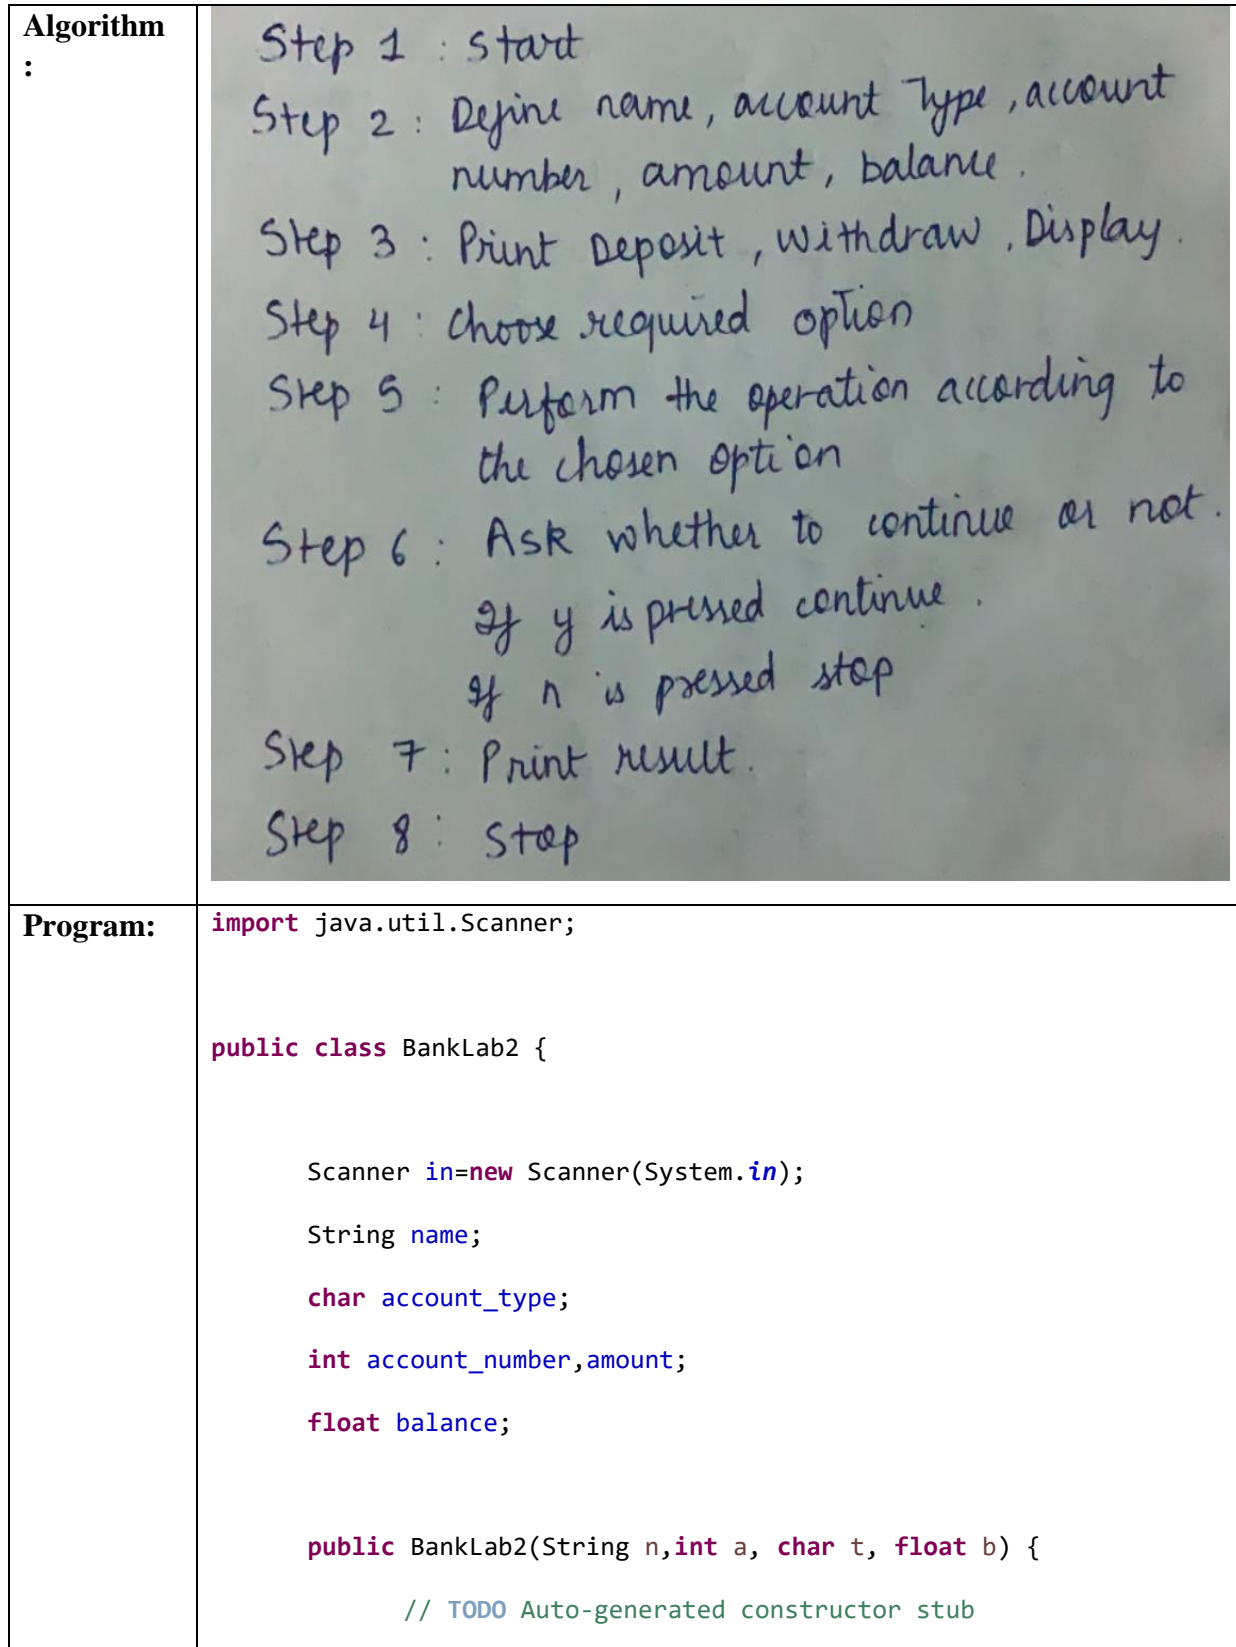 Algorithm
:
Step 1 : Start
Step 2 : Define name, account Type, account
number, amount, balance.
Step 3 : Print Deposit, Withdraw, Display.
Step 4 : Choose required option
Step 5 : Perform the operation according to
the chosen option
Step 6 : Ask whether to continue or not.
If y is pressed continue.
If n is pressed stop
Step 7 : Print result.
Step 8 : Stop
Program:
import java.util.Scanner;
public class BankLab2 {
Scanner in=new Scanner(System.in);
String name;
char account_type;
int account_number,amount;
float balance;
public BankLab2(String n,int a, char t, float b) {
// TODO Auto-generated constructor stub